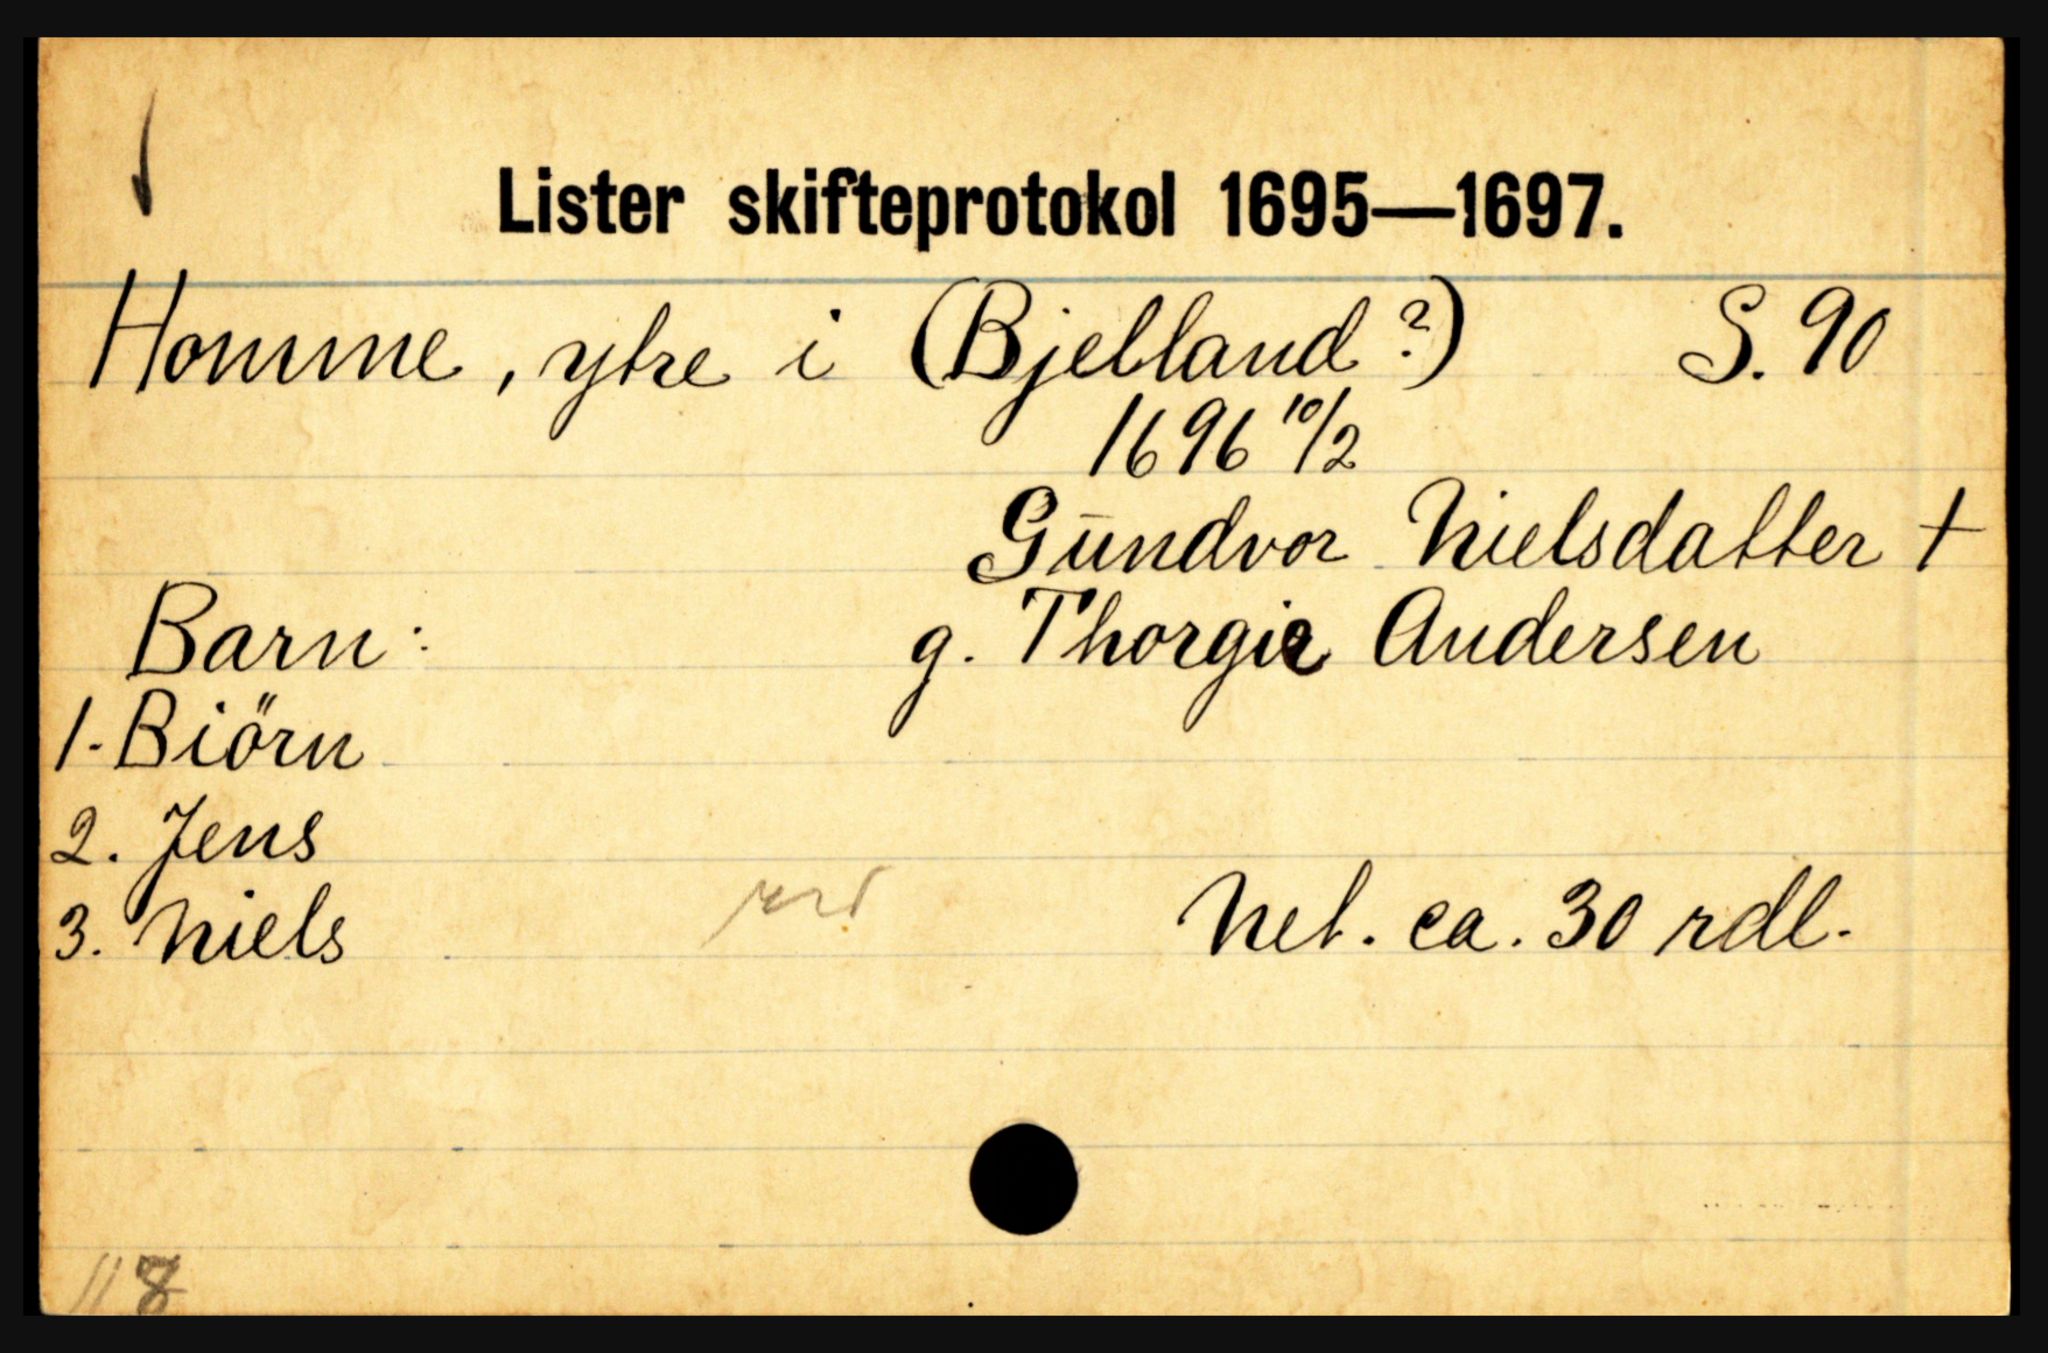 Lister skifteprotokol 1695—1697.
Homme, ytre i (Bjelland?) S. 90
1696 10/2
Gundvor Nielsdatter †
Barn: g. Thorgier Andersen
1. Biörn
2. Jens
3. Niels Net. ca. 30 rdl.
118